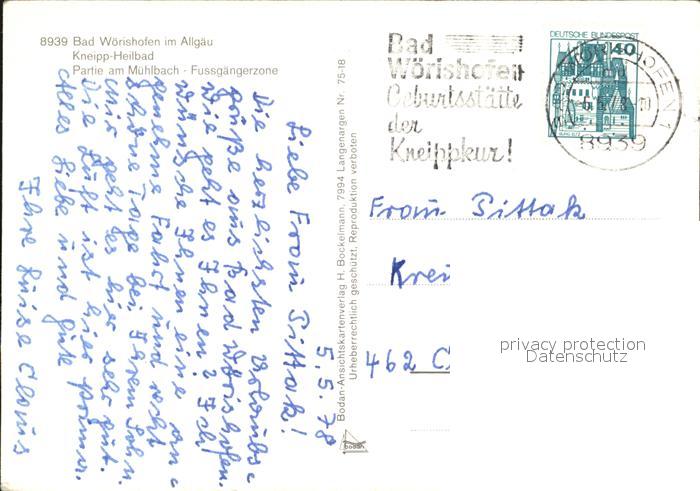 8939 Bad Wörishofen im Allgäu
Kneipp-Heilbad
Partie am Mühlbach - Fussgängerzone
5.5.78
Liebe Frau Pittak!
Die herzlichsten Urlaubs-
grüße aus Bad Wörishofen.
Wie geht es Ihnen? Ich
wünsche Ihnen eine an-
genehme Fahrt und recht
schöne Tage bei Ihrem Sohn.
Mir geht es hier sehr gut.
Die Luft ist hier prima.
Alles Liebe und Gute
Ihre Luise Claus
Bodan-Ansichtskartenverlag H. Bockelmann, 7994 Langenargen Nr. 75-18
Urheberrechtlich geschützt. Reproduktion verboten
bodan
Bad
Wörishofen
Geburtsstätte
der
Kneippkur!
DEUTSCHE BUNDESPOST
40
8939
Frau Pittak
Krei
462 C
privacy protection
Datenschutz